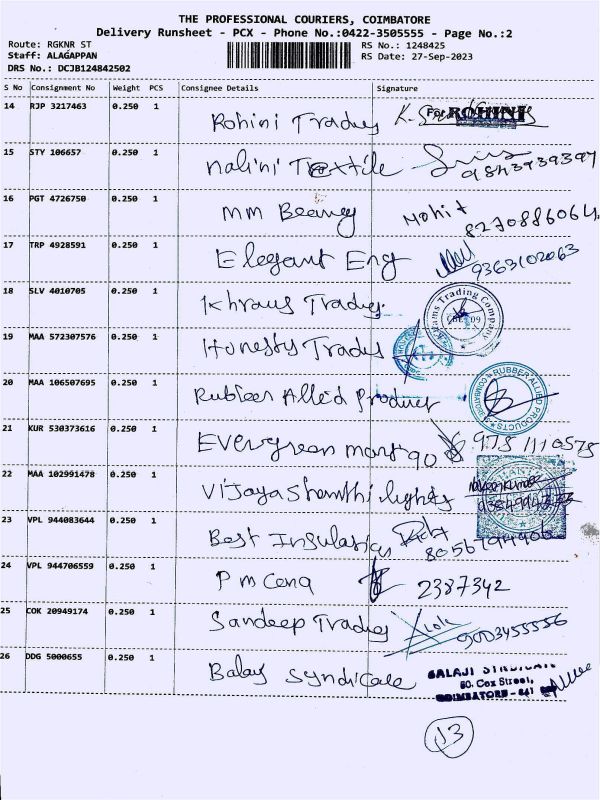 THE PROFESSIONAL COURIERS, COIMBATORE
Delivery Runsheet - PCX - Phone No.:0422-3505555 - Page No.:2
Route: RGKNR ST RS No.: 1248425
Staff: ALAGAPPAN RS Date: 27-Sep-2023
DRS No.: DCJB124842502
S No Consignment No Weight PCS Consignee Details Signature
14 RJP 3217463 0.250 1 Rohini Trades For ROHINI
15 STY 106657 0.250 1 nalini Textile 9843939397
16 PGT 4726750 0.250 1 MM Mohit 8270886064
17 TRP 4928591 0.250 1 Elegant Eng 9363102063
18 SLV 4010705 0.250 1 Khraus Trades Trading Company
19 MAA 572307576 0.250 1 Honesty Trades
20 MAA 106507695 0.250 1 Rubber Allied Product RUBBER ALLIED PRODUCTS COIMBATORE
21 KUR 530373616 0.250 1 Evergreen mart
22 MAA 102991478 0.250 1 Vijaya Shamthi lights
23 VPL 944083644 0.250 1 Best Insulation
24 VPL 944706559 0.250 1 P m Cena 2387342
25 COK 20949174 0.250 1 Sandeep Trades 9003455556
26 DDG 5000655 0.250 1 Balay Syndicate BALAJI SYNDICATE
80, Cox Street,
COIMBATORE - 641
13